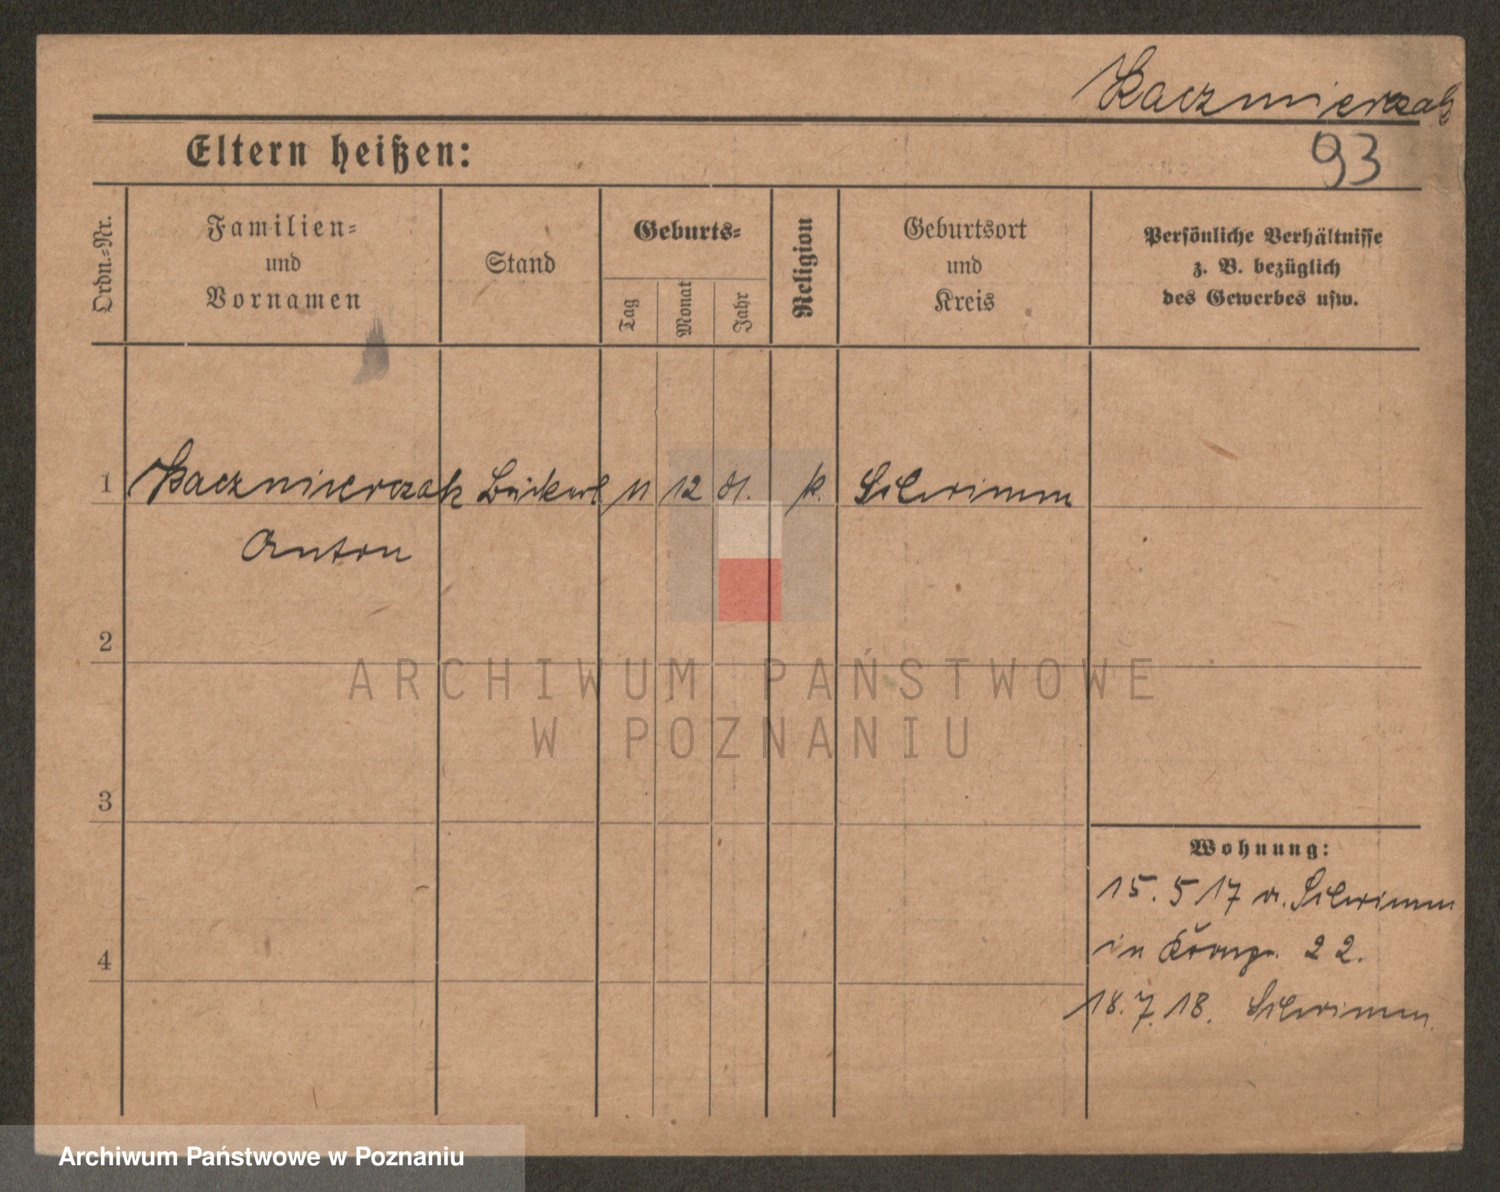 Kaczmierczak
93
Eltern heißen:
Ordn.-Nr.
Familien-
und
Vornamen
Stand
Geburts-
Tag
Monat
Jahr
Religion
Geburtsort
und
Kreis
Persönliche Verhältnisse
z. B. bezüglich
des Gewerbes usw.
1 Kaczmierczak 11 12 81. k.
Anton
2
3
4
Wohnung:
15. 5 17
in 22.
18. 7. 18.
ARCHIWUM PAŃSTWOWE
W POZNANIU
Archiwum Państwowe w Poznaniu